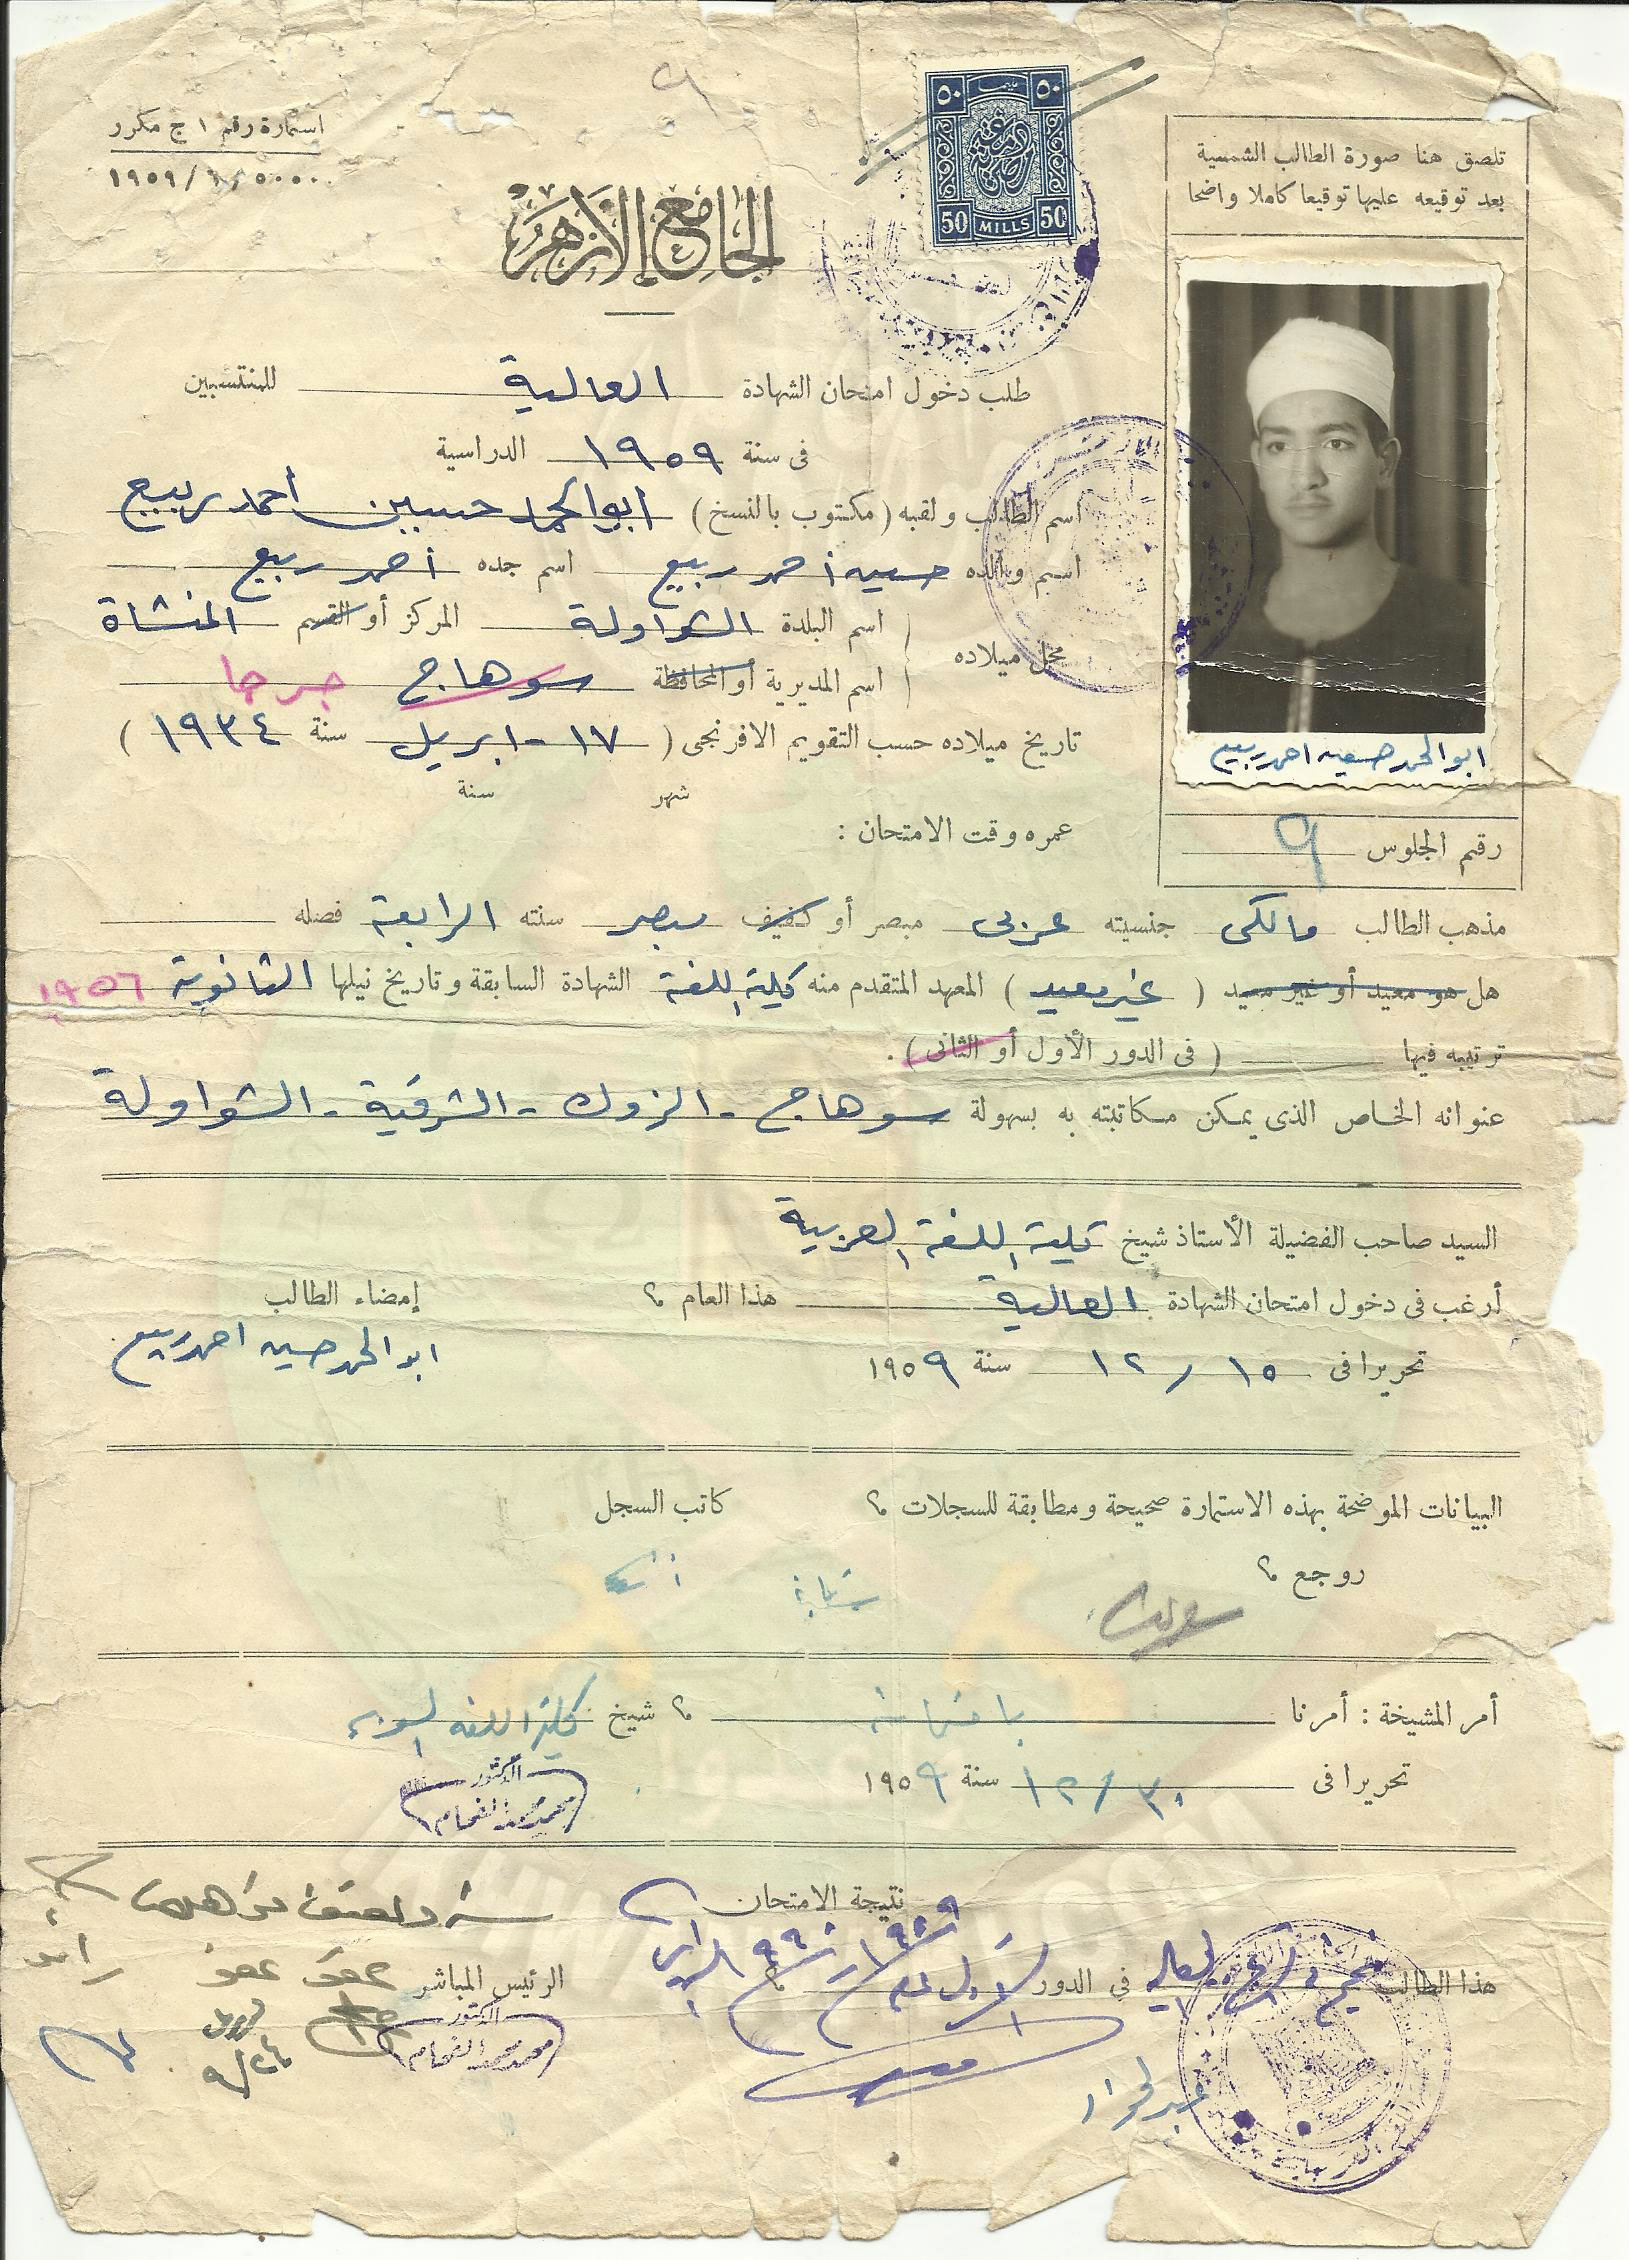 استمارة رقم ١ ج مكرر
١٩٥٩/٦/٥٠٠٠
٥٠ ٥٠
50 MILLS 50
تلصق هنا صورة الطالب الشمسية
بعد توقيعه عليها توقيعا كاملا واضحا
الجامع الأزهر
طلب دخول امتحان الشهادة العالية للمنتسبين
فى سنة ١٩٥٩ الدراسية
اسم الطالب ولقبه (مكتوب بالنسخ) ابو الحمد حسين احمد ربيع
اسم والده حسين أحمد ربيع اسم جده أحمد ربيع
محل ميلاده
اسم البلدة الشواولة المركز أو القسم المنشاة
اسم المديرية أو المحافظة سوهاج جرجا
تاريخ ميلاده حسب التقويم الافرنجى (١٧ - ابريل سنة ١٩٣٤)
ابو الحمد حسين احمد ربيع
شهر سنة
عمره وقت الامتحان :
رقم الجلوس ٩
مذهب الطالب مالكى جنسيته عربى مبصر أو كفيف مبصر سنته الرابعة فصله
هل هو معيد أو غير معيد (غير معيد) المعهد المتقدم منه كلية اللغة الشهادة السابقة وتاريخ نيلها الثانوية ١٩٥٦
ترتيبه فيها (فى الدور الأول أو الثانى).
عنوانه الخاص الذى يمكن مكاتبته به بسهولة سوهاج - الزوك - الشرقية - الشواولة
السيد صاحب الفضيلة الأستاذ شيخ كلية اللغة العربية
أرغب فى دخول امتحان الشهادة العالية هذا العام ؟ إمضاء الطالب
تحريرا فى ١٥ / ١٢ سنة ١٩٥٩ ابو الحمد حسين احمد ربيع
البيانات الموضحة بهذه الاستمارة صحيحة ومطابقة للسجلات ؟ كاتب السجل
روجع ؟
أمر المشيخة : أمرنا ؟ شيخ كلية اللغة العربية
تحريرا فى ٣٠ / ١٢ سنة ١٩٥٩
الدكتور
محمد محمد الفحام
نتيجة الامتحان
هذا الطالب نجح فى فى الدور الأول
الرئيس المباشر
الدكتور
محمد محمد الفحام